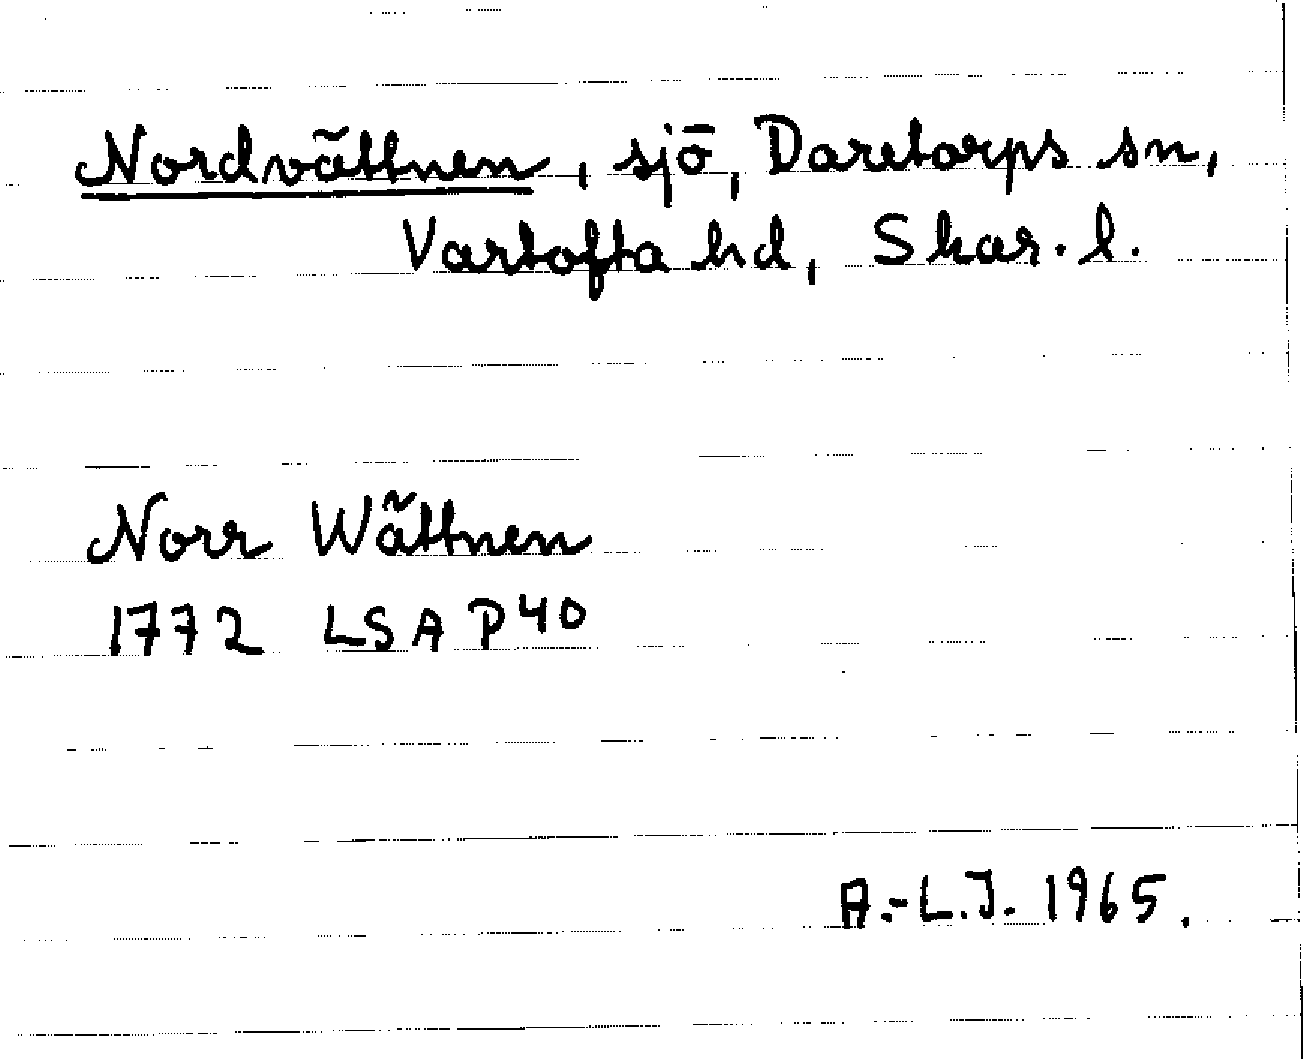 Nordvättnen, sjö, Daretorps sn,
Vartofta hd, Skar. l.
Norr Wättnen
1772 LSA P40
A.-L.J. 1965.